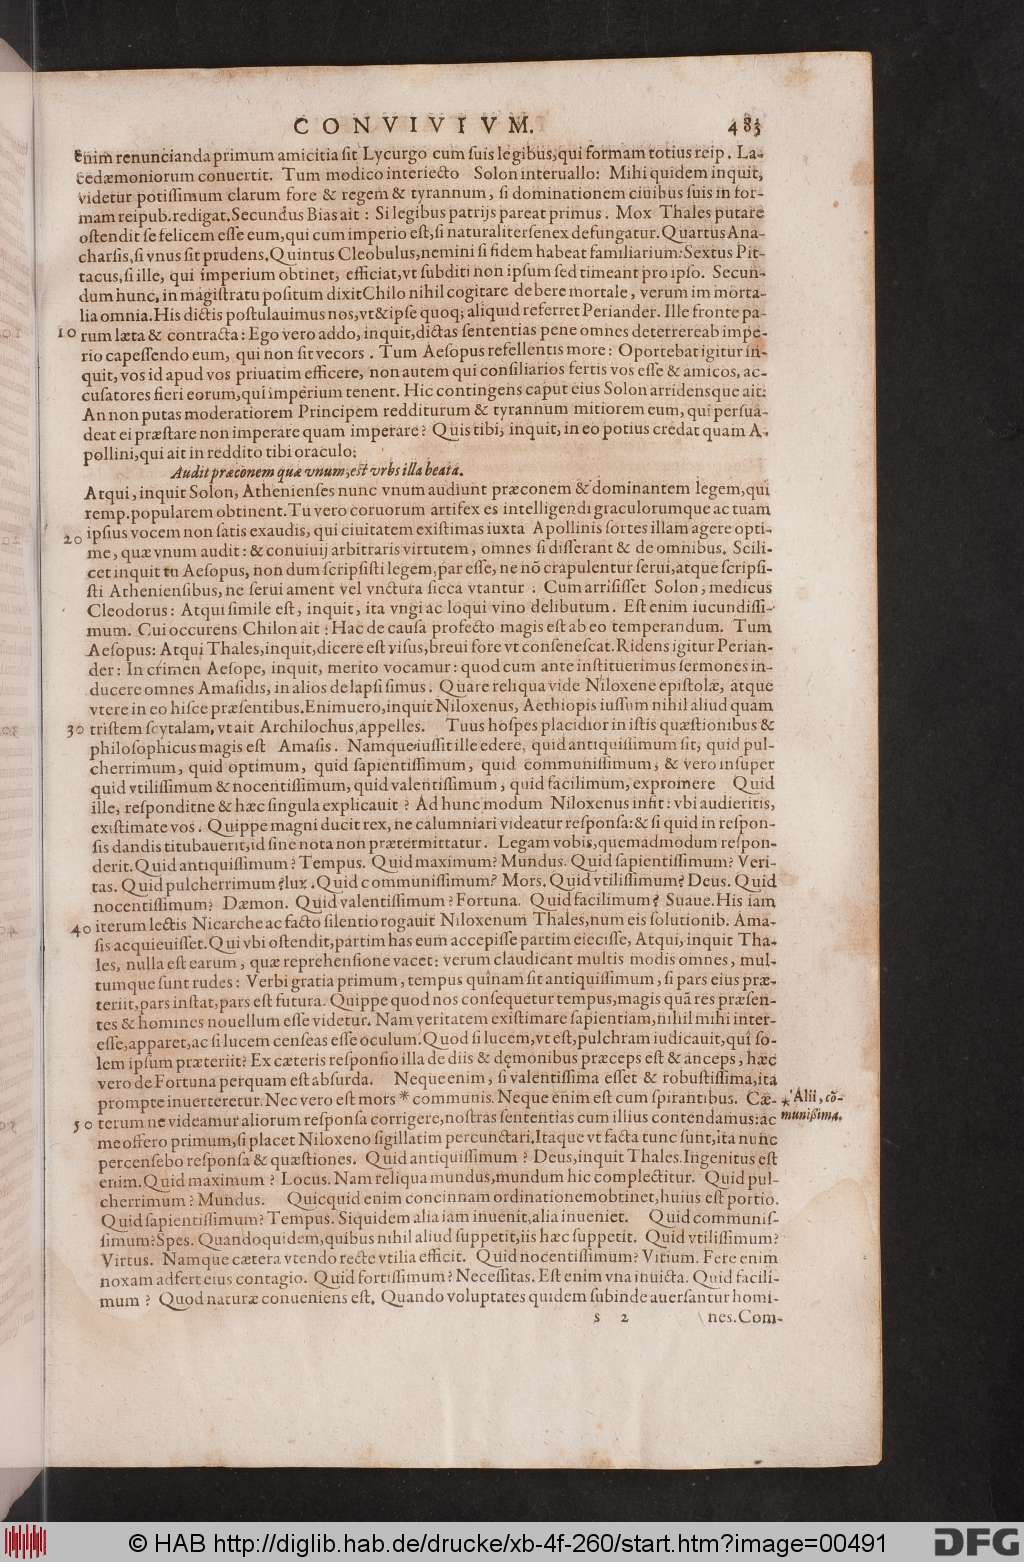 CONVIVIVM. 483
enim renuncianda primum amicitia ſit Lycurgo cum ſuis legibus, qui formam totius reip. La-
cedæmoniorum conuertit. Tum modico interiecto Solon interuallo: Mihi quidem inquit,
videtur potiſſimum clarum fore & regem & tyrannum, ſi dominationem ciuibus ſuis in for-
mam reipub. redigat. Secundus Bias ait: Si legibus patrijs pareat primus. Mox Thales putare
oſtendit ſe felicem eſſe eum, qui cum imperio eſt, ſi naturaliter ſenex defungatur. Quartus Ana-
charſis, ſi vnus ſit prudens. Quintus Cleobulus, nemini ſi fidem habeat familiarium: Sextus Pit-
tacus, ſi ille, qui imperium obtinet, efficiat, vt ſubditi non ipſum ſed timeant pro ipſo. Secun-
dum hunc, in magiſtratu poſitum dixit Chilo nihil cogitare debere mortale, verum immorta-
lia omnia. His dictis poſtulauimus nos, vt & ipſe quoq; aliquid referret Periander. Ille fronte pa-
10 rum læta & contracta: Ego vero addo, inquit, dictas ſententias pene omnes deterrere ab impe-
rio capeſſendo eum, qui non ſit vecors. Tum Aeſopus refellentis more: Oportebat igitur in-
quit, vos id apud vos priuatim efficere, non autem qui conſiliarios fertis vos eſſe & amicos, ac-
cuſatores fieri eorum, qui imperium tenent. Hic contingens caput eius Solon arridensque ait:
An non putas moderatiorem Principem redditurum & tyrannum mitiorem eum, qui perſua-
deat ei præſtare non imperare quam imperare? Quis tibi, inquit, in eo potius credat quam A-
pollini, qui ait in reddito tibi oraculo:
Audit præconem quæ vnum, eſt vrbs illa beata.
Atqui, inquit Solon, Athenienſes nunc vnum audiunt præconem & dominantem legem, qui
remp. popularem obtinent. Tu vero coruorum artifex es intelligendi graculorumque ac tuam
20 ipſius vocem non ſatis exaudis, qui ciuitatem exiſtimas iuxta Apollinis ſortes illam agere opti-
me, quæ vnum audit: & conuiuij arbitraris virtutem, omnes ſi diſſerant & de omnibus. Scili-
cet inquit tu Aeſopus, non dum ſcripſiſti legem, par eſſe, ne nō crapulentur ſerui, atque ſcripſi-
ſti Athenienſibus, ne ſerui ament vel vnctura ſicca vtantur. Cum arriſiſſet Solon, medicus
Cleodorus: Atqui ſimile eſt, inquit, ita vngi ac loqui vino delibutum. Eſt enim iucundiſſi-
mum. Cui occurens Chilon ait: Hac de cauſa profecto magis eſt ab eo temperandum. Tum
Aeſopus: Atqui Thales, inquit, dicere eſt viſus, breui fore vt conſeneſcat. Ridens igitur Perian-
der: In crimen Aeſope, inquit, merito vocamur: quod cum ante inſtituerimus ſermones in-
ducere omnes Amaſidis, in alios delapſi ſimus. Quare reliqua vide Niloxene epiſtolæ, atque
vtere in eo hiſce præſentibus. Enimuero, inquit Niloxenus, Aethiopis iuſſum nihil aliud quam
30 triſtem ſcytalam, vt ait Archilochus, appelles. Tuus hoſpes placidior in iſtis quæſtionibus &
philoſophicus magis eſt Amaſis. Namque iuſſit ille edere, quid antiquiſſimum ſit, quid pul-
cherrimum, quid optimum, quid ſapientiſſimum, quid communiſſimum, & vero inſuper
quid vtiliſſimum & nocentiſſimum, quid valentiſſimum, quid facilimum, expromere Quid
ille, reſponditne & hæc ſingula explicauit? Ad hunc modum Niloxenus infit: vbi audieritis,
exiſtimate vos. Quippe magni ducit rex, ne calumniari videatur reſponſa: & ſi quid in reſpon-
ſis dandis titubauerit, id ſine nota non prætermittatur. Legam vobis, quemadmodum reſpon-
derit. Quid antiquiſſimum? Tempus. Quid maximum? Mundus. Quid ſapientiſſimum? Veri-
tas. Quid pulcherrimum? lux. Quid communiſſimum? Mors. Quid vtiliſſimum? Deus. Quid
nocentiſſimum? Dæmon. Quid valentiſſimum? Fortuna. Quid facilimum? Suaue. His iam
40 iterum lectis Nicarche ac facto ſilentio rogauit Niloxenum Thales, num eis ſolutionib. Ama-
ſis acquieuiſſet. Qui vbi oſtendit, partim has eum accepiſſe partim eieciſſe, Atqui, inquit Tha-
les, nulla eſt earum, quæ reprehenſione vacet: verum claudicant multis modis omnes, mul-
tumque ſunt rudes: Verbi gratia primum, tempus quînam ſit antiquiſſimum, ſi pars eius præ-
teriit, pars inſtat, pars eſt futura. Quippe quod nos conſequetur tempus, magis quā res præſen-
tes & homines nouellum eſſe videtur. Nam veritatem exiſtimare ſapientiam, nihil mihi inter-
eſſe, apparet, ac ſi lucem cenſeas eſſe oculum. Quod ſi lucem, vt eſt, pulchram iudicauit, quî ſo-
lem ipſum præteriit? Ex cæteris reſponſio illa de diis & dęmonibus præceps eſt & anceps, hæc
vero de Fortuna perquam eſt abſurda. Neque enim, ſi valentiſſima eſſet & robuſtiſſima, ita
prompte inuerteretur. Nec vero eſt mors * communis. Neque enim eſt cum ſpirantibus. Cæ-
* Alii, cō-
muniſſima.
50 terum ne videamur aliorum reſponſa corrigere, noſtras ſententias cum illius contendamus: ac
me offero primum, ſi placet Niloxeno ſigillatim percunctari. Itaque vt facta tunc ſunt, ita nunc
percenſebo reſponſa & quæſtiones. Quid antiquiſſimum? Deus, inquit Thales. Ingenitus eſt
enim. Quid maximum? Locus. Nam reliqua mundus, mundum hic complectitur. Quid pul-
cherrimum? Mundus. Quicquid enim concinnam ordinationem obtinet, huius eſt portio.
Quid ſapientiſſimum? Tempus. Siquidem alia iam inuenit, alia inueniet. Quid communiſ-
ſimum? Spes. Quandoquidem, quibus nihil aliud ſuppetit, iis hæc ſuppetit. Quid vtiliſſimum?
Virtus. Namque cætera vtendo recte vtilia efficit. Quid nocentiſſimum? Vitium. Fere enim
noxam adfert eius contagio. Quid fortiſſimum? Neceſſitas. Eſt enim vna inuicta. Quid facili-
mum? Quod naturæ conueniens eſt. Quando voluptates quidem ſubinde auerſantur homi-
s 2 nes. Com-
© HAB http://diglib.hab.de/drucke/xb-4f-260/start.htm?image=00491
DFG